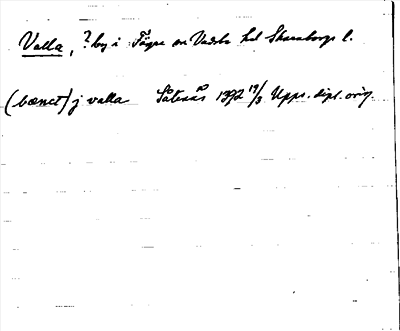 Valla, ? by i Fägre sn Vadsbo hd Skaraborgs l.
(bænct) j valla Såtenäs 1392 19/3 Upps. dipl. orig.